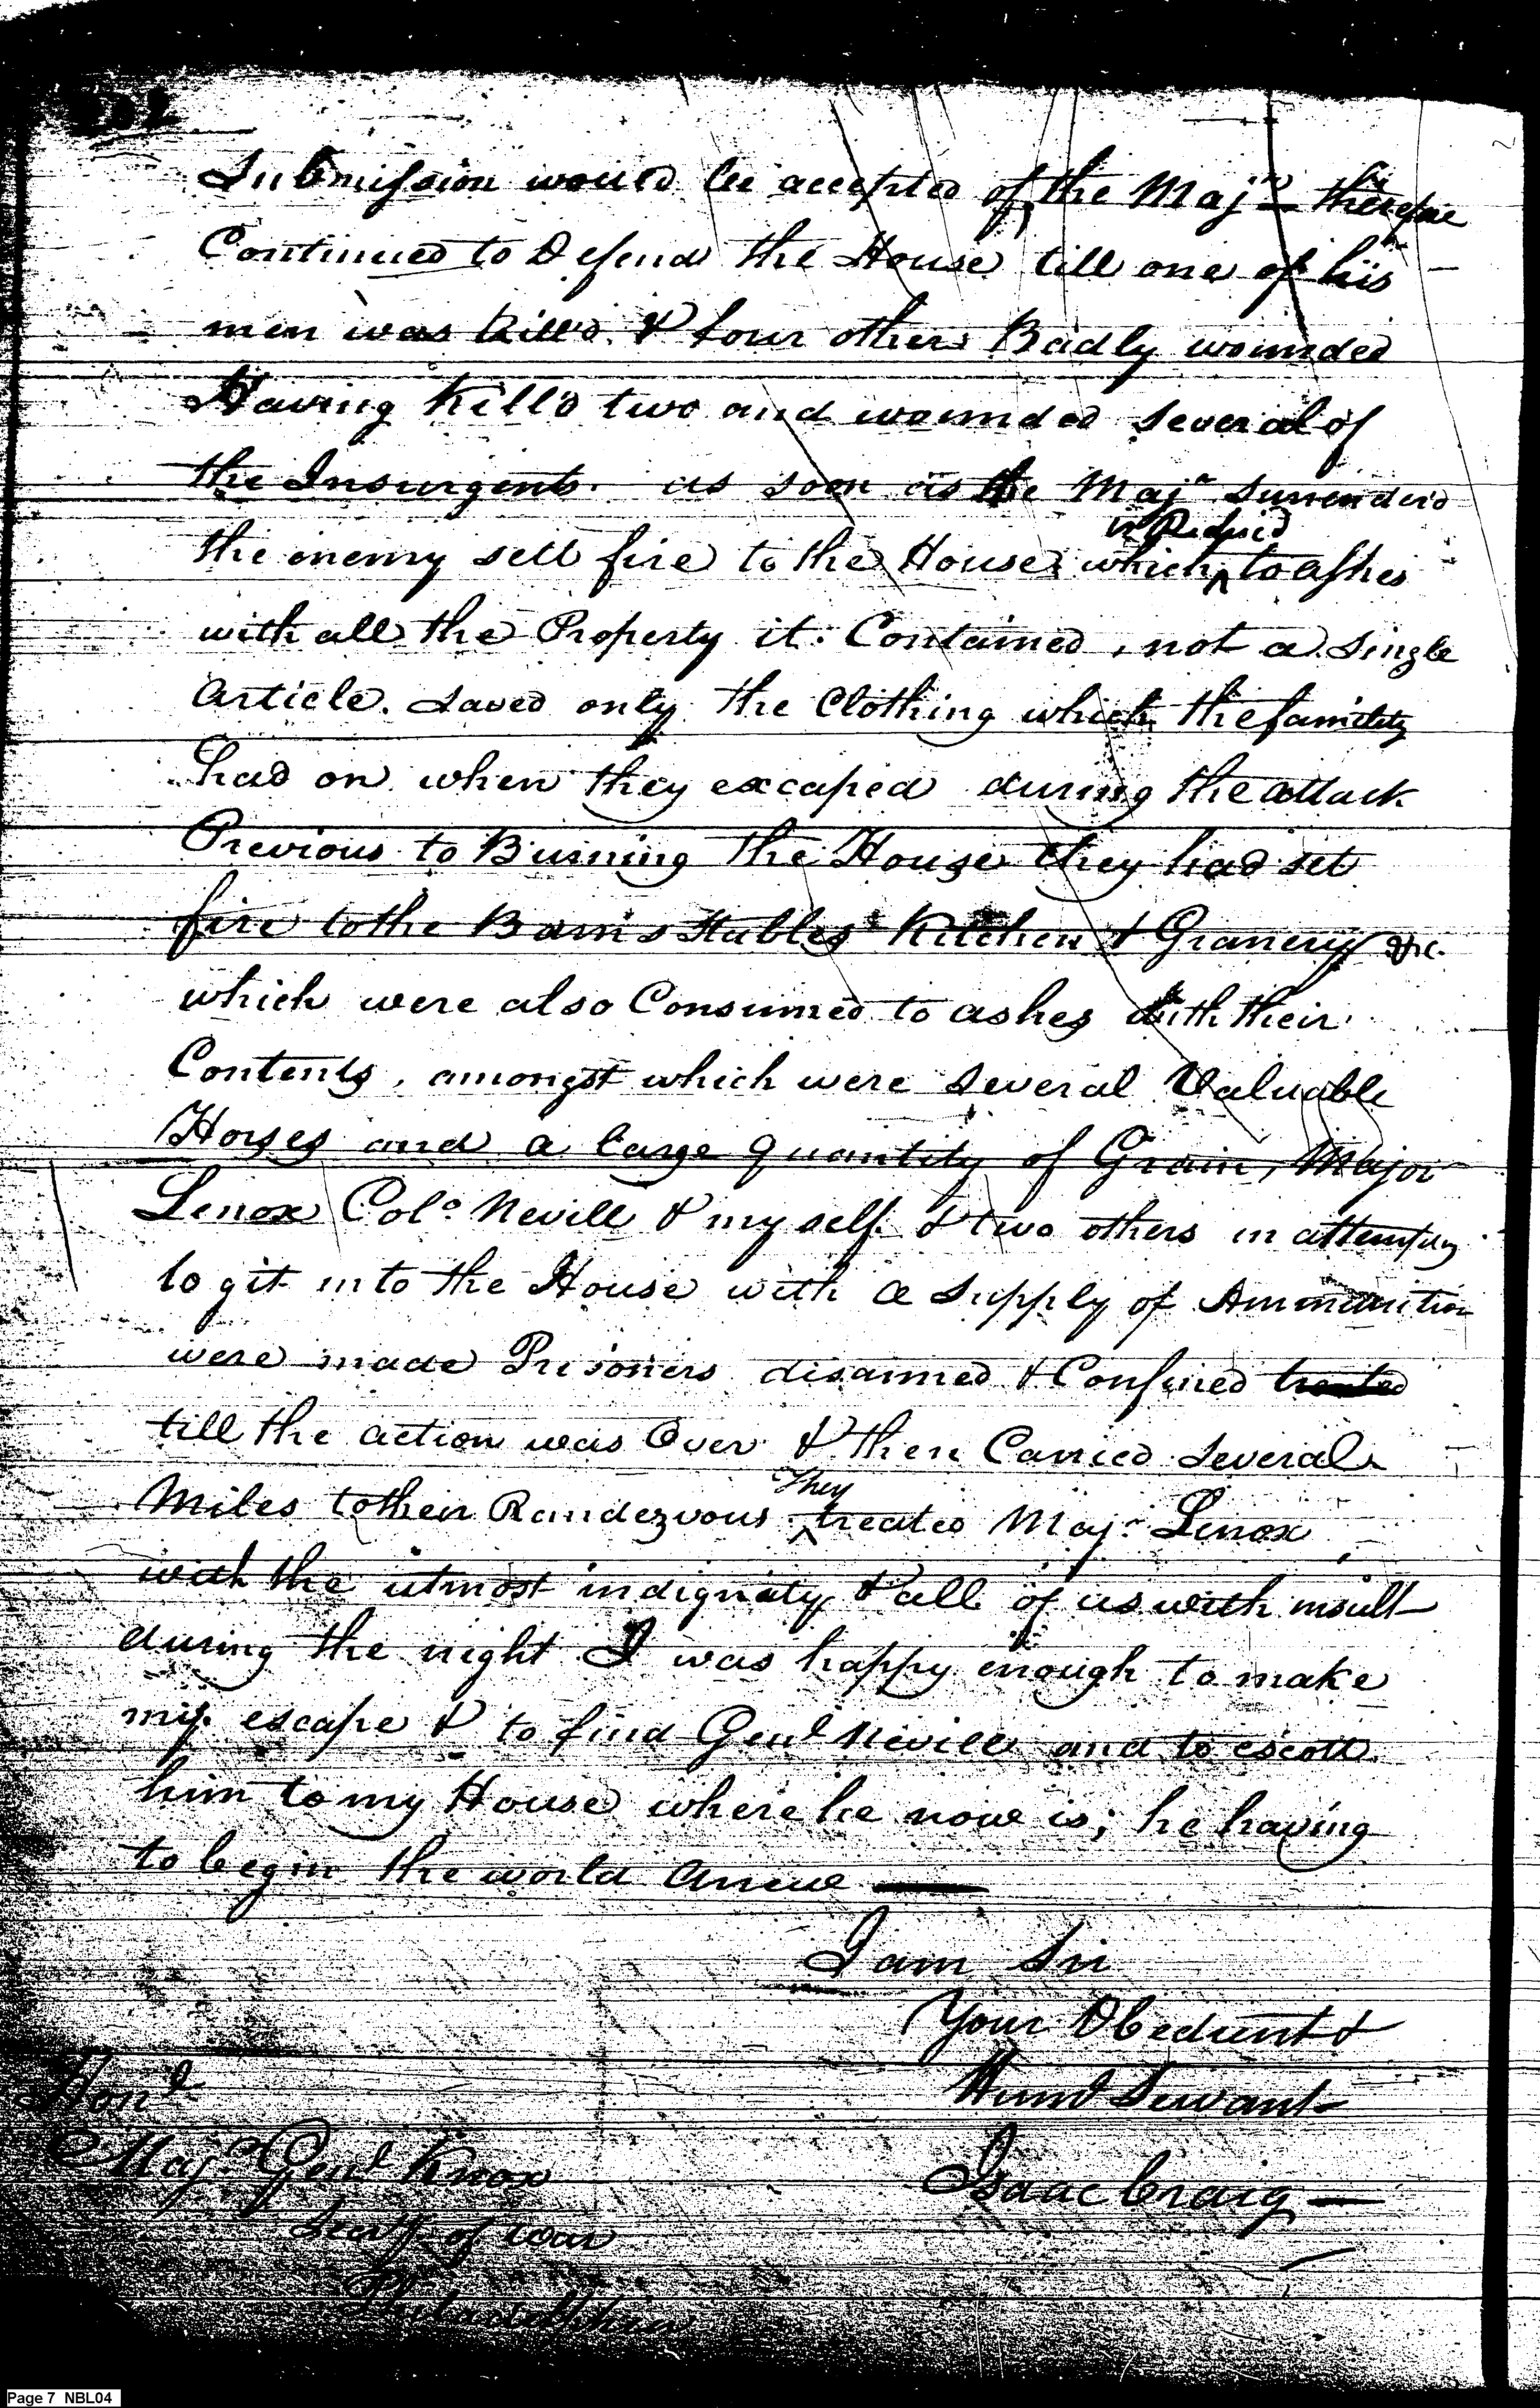 Submission would be accepted of, the Majr therefore
Continued to Defend the House till one of his
men was kill'd & four others Badly wounded
Having kill'd two and wounded several of
the Insurgents. as soon as the Majr surrender'd
the enemy sett fire to the House which was Reduced to ashes
with all the Property it Contained, not a single
article saved only the Clothing which the family
had on when they excaped during the attack
Previous to Burning the House they had set
fire to the Barns Stables Kitchen & Granery &c.
which were also Consumed to ashes with their
Contents, amongst which were several Valuable
Horses and a large quantity of Grain, Major
Lenox Colo Nevill & my self & two others in attempting
to git into the House with a supply of Ammunition
were made Prisoners disarmed & Confined treated
till the action was Over & then Carried several
Miles to their Randezvous They treated Majr Lenox
with the utmost indignaty & all of us with insult
during the night I was happy enough to make
my escape & to find Genl Nevill and to escott
him to my House where he now is; he having
to begin the world anew —
I am Sir
Your Obedient &
Humb Servant
Isaac Craig —
Honl
Majr Genl Knox
Secry of War
Philadelphia
Page 7 NBL04